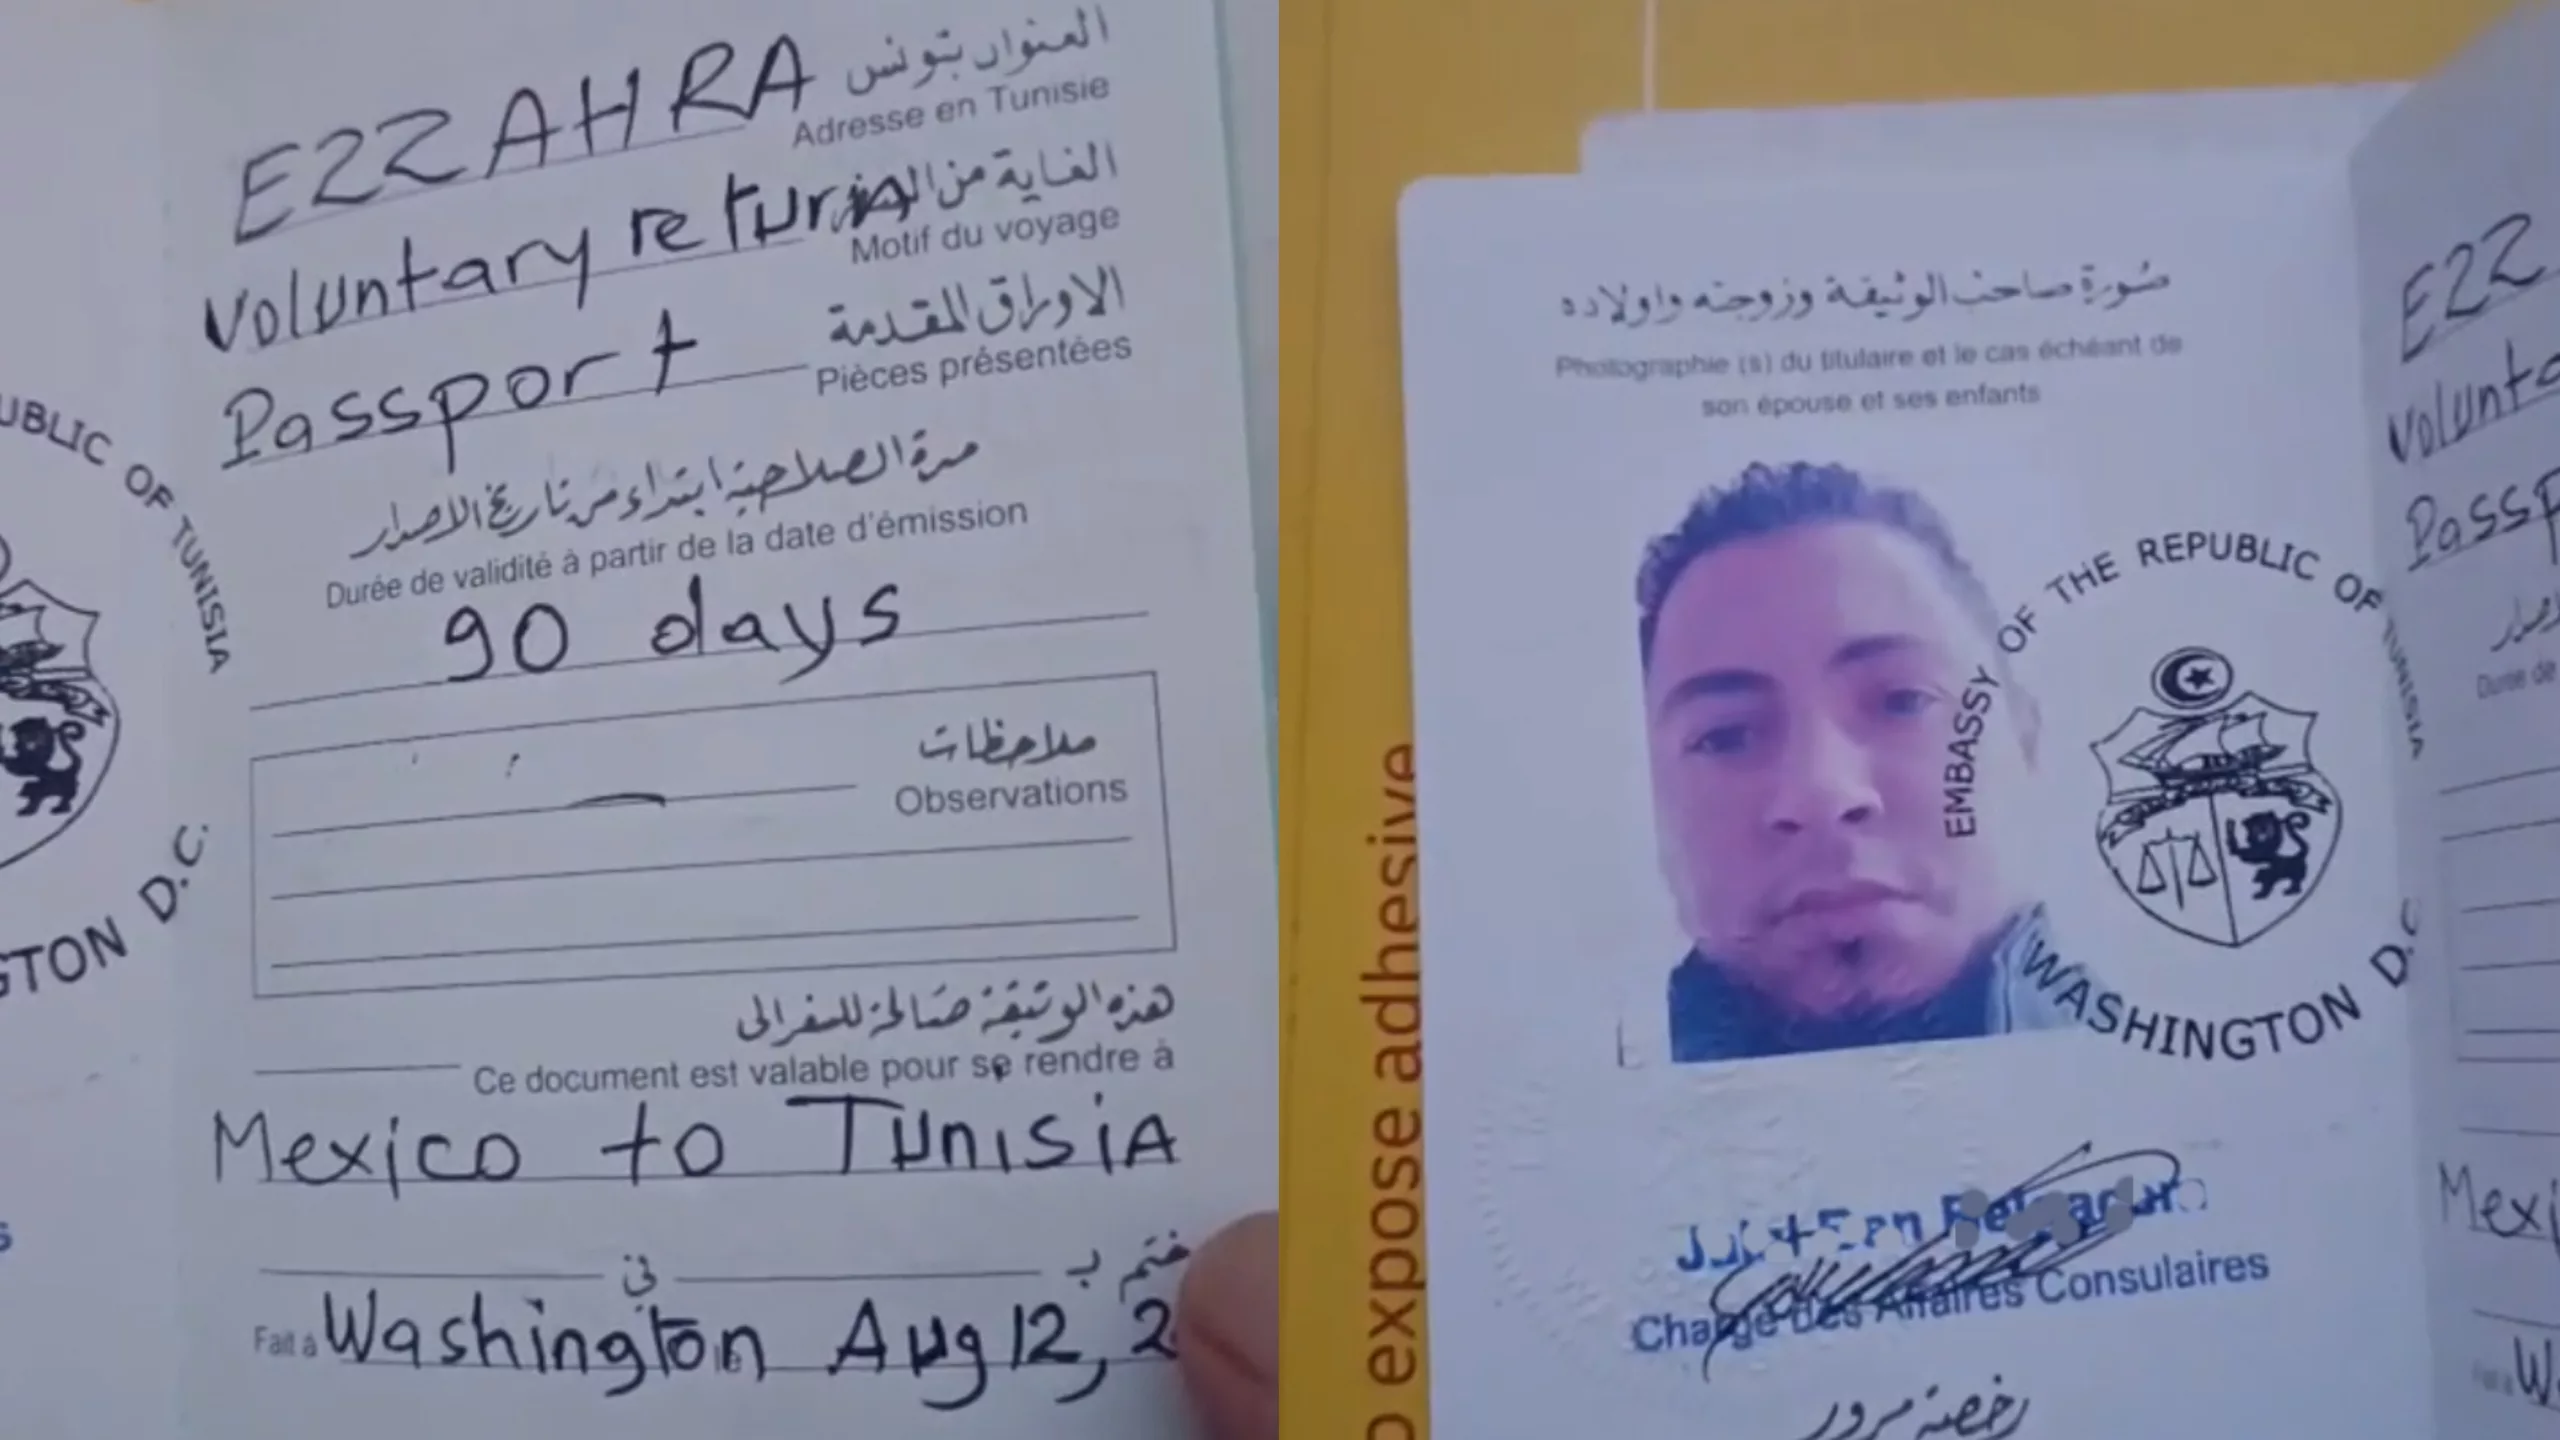 EZZAHRA
العنوان بتونس
Adresse en Tunisie
الغاية من
Voluntary return
Motif du voyage
الاوراق المقدمة
Passport
Pièces présentées
مدة الصلاحية ابتداء من تاريخ الاصدار
Durée de validité à partir de la date d'émission
90 days
ملاحظات
Observations
هذه الوثيقة صالحة للسفر الى
Ce document est valable pour se rendre à
Mexico to Tunisia
ختم ب في
Fait à Washington le Aug 12, 2
UBLIC OF TUNISIA
GTON D.C.
صورة صاحب الوثيقة وزوجته واولاده
Photographie (s) du titulaire et le cas échéant de
son épouse et ses enfants
EMBASSY OF THE REPUBLIC OF TUNISIA
WASHINGTON D.C
Chargé Des Affaires Consulaires
رخصة مرور
o expose adhesive
EZZ
Volunta
Passp
الاصدار
Durée de
Mexi
W